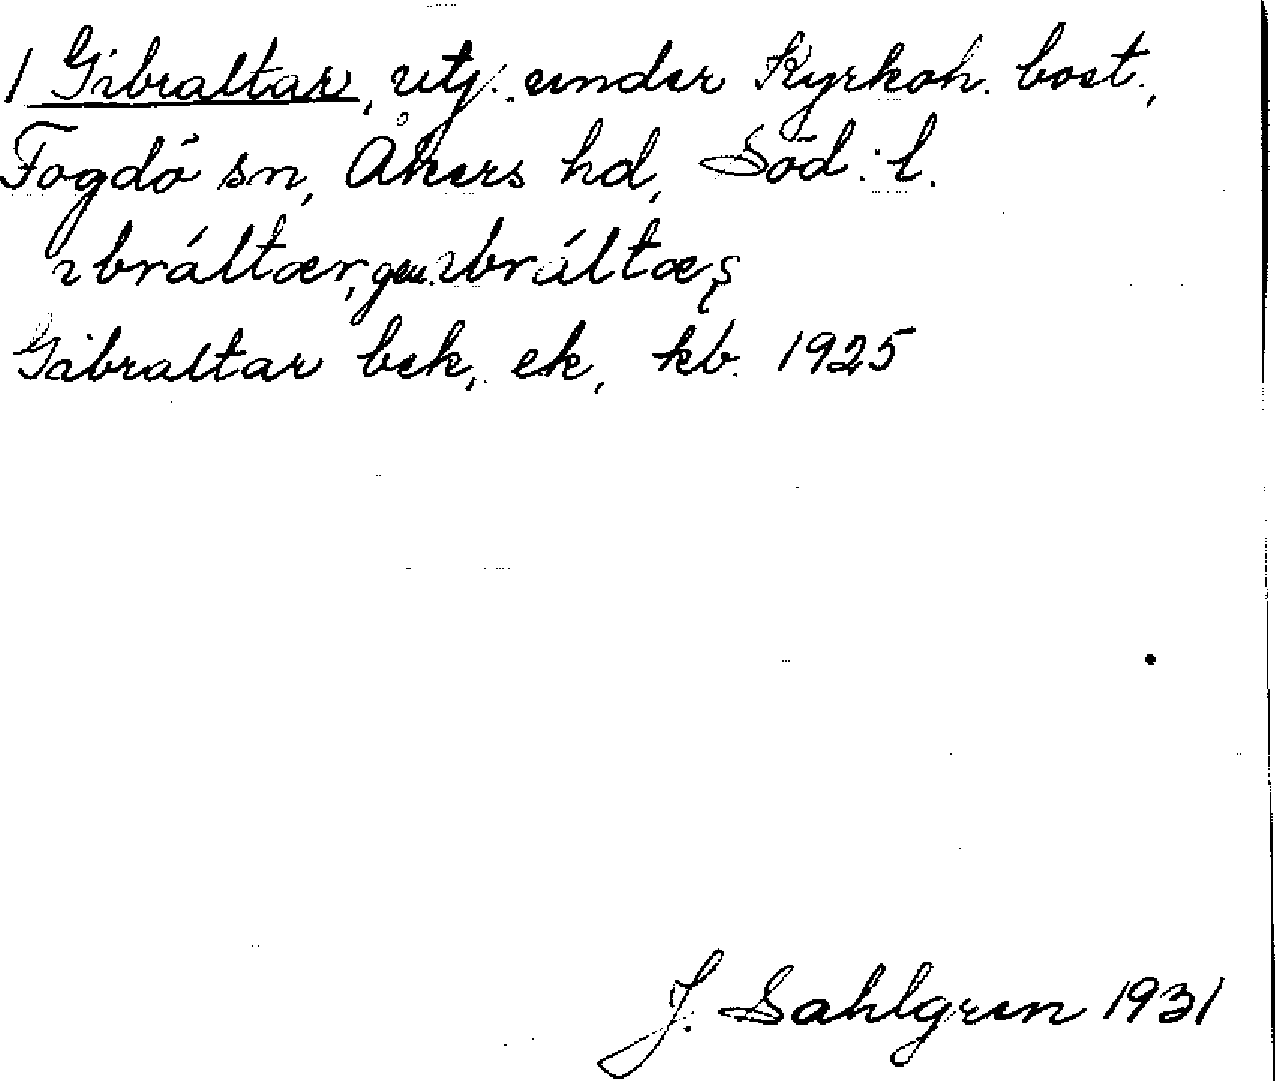 1 Gibraltar, utj. under Kyrkoh. bost.,
Fogdö sn, Åkers hd, Söd. l.
ıbráltær, gen. ıbráltæş
Gibraltar bek, ek, kb. 1925
J. Sahlgren 1931